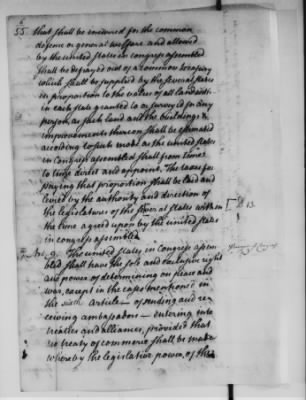 55 that shall be incurred for the common
defence or general welfare and allowed
by the united states in congress assembled
shall be defrayed out of a common treasury
which shall be supplied by the several states
in proportion to the value of all land within
in each state granted to or surveyed for any
person, as such land and the buildings &
improvements thereon shall be estimated
according to such mode as the united states
in Congress assembled shall from time
to time direct and appoint. The taxes for
paying that proportion shall be laid and
levied by the authority and direction of
the legislatures of the several states within
the time agreed upon by the united states
in congress assembled
Art. 9. The united states in Congress assem
bled shall have the sole and exclusive right
and power of determining on peace and
war, except in the cases mentioned in
the sixth Article – of sending and re
ceiving ambassadors – entering into
treaties and alliances, provided that
no treaty of commerce shall be made
whereby the legislative power, of the